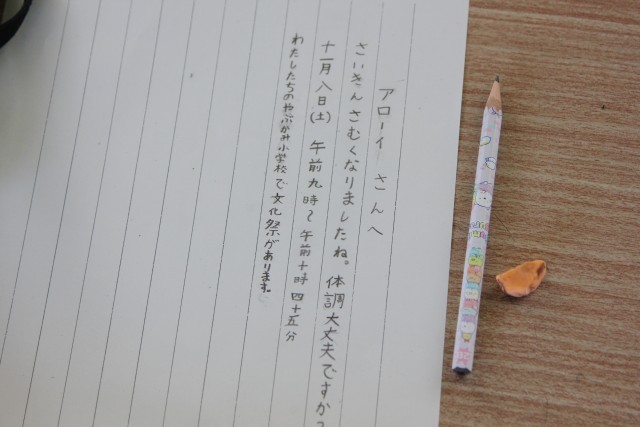 アローイさんへ
さいきんさむくなりましたね。体調大丈夫ですか?
十一月八日(土) 午前九時〜午前十時四十五分
わたしたちのやぶかみ小学校で文化祭があります。